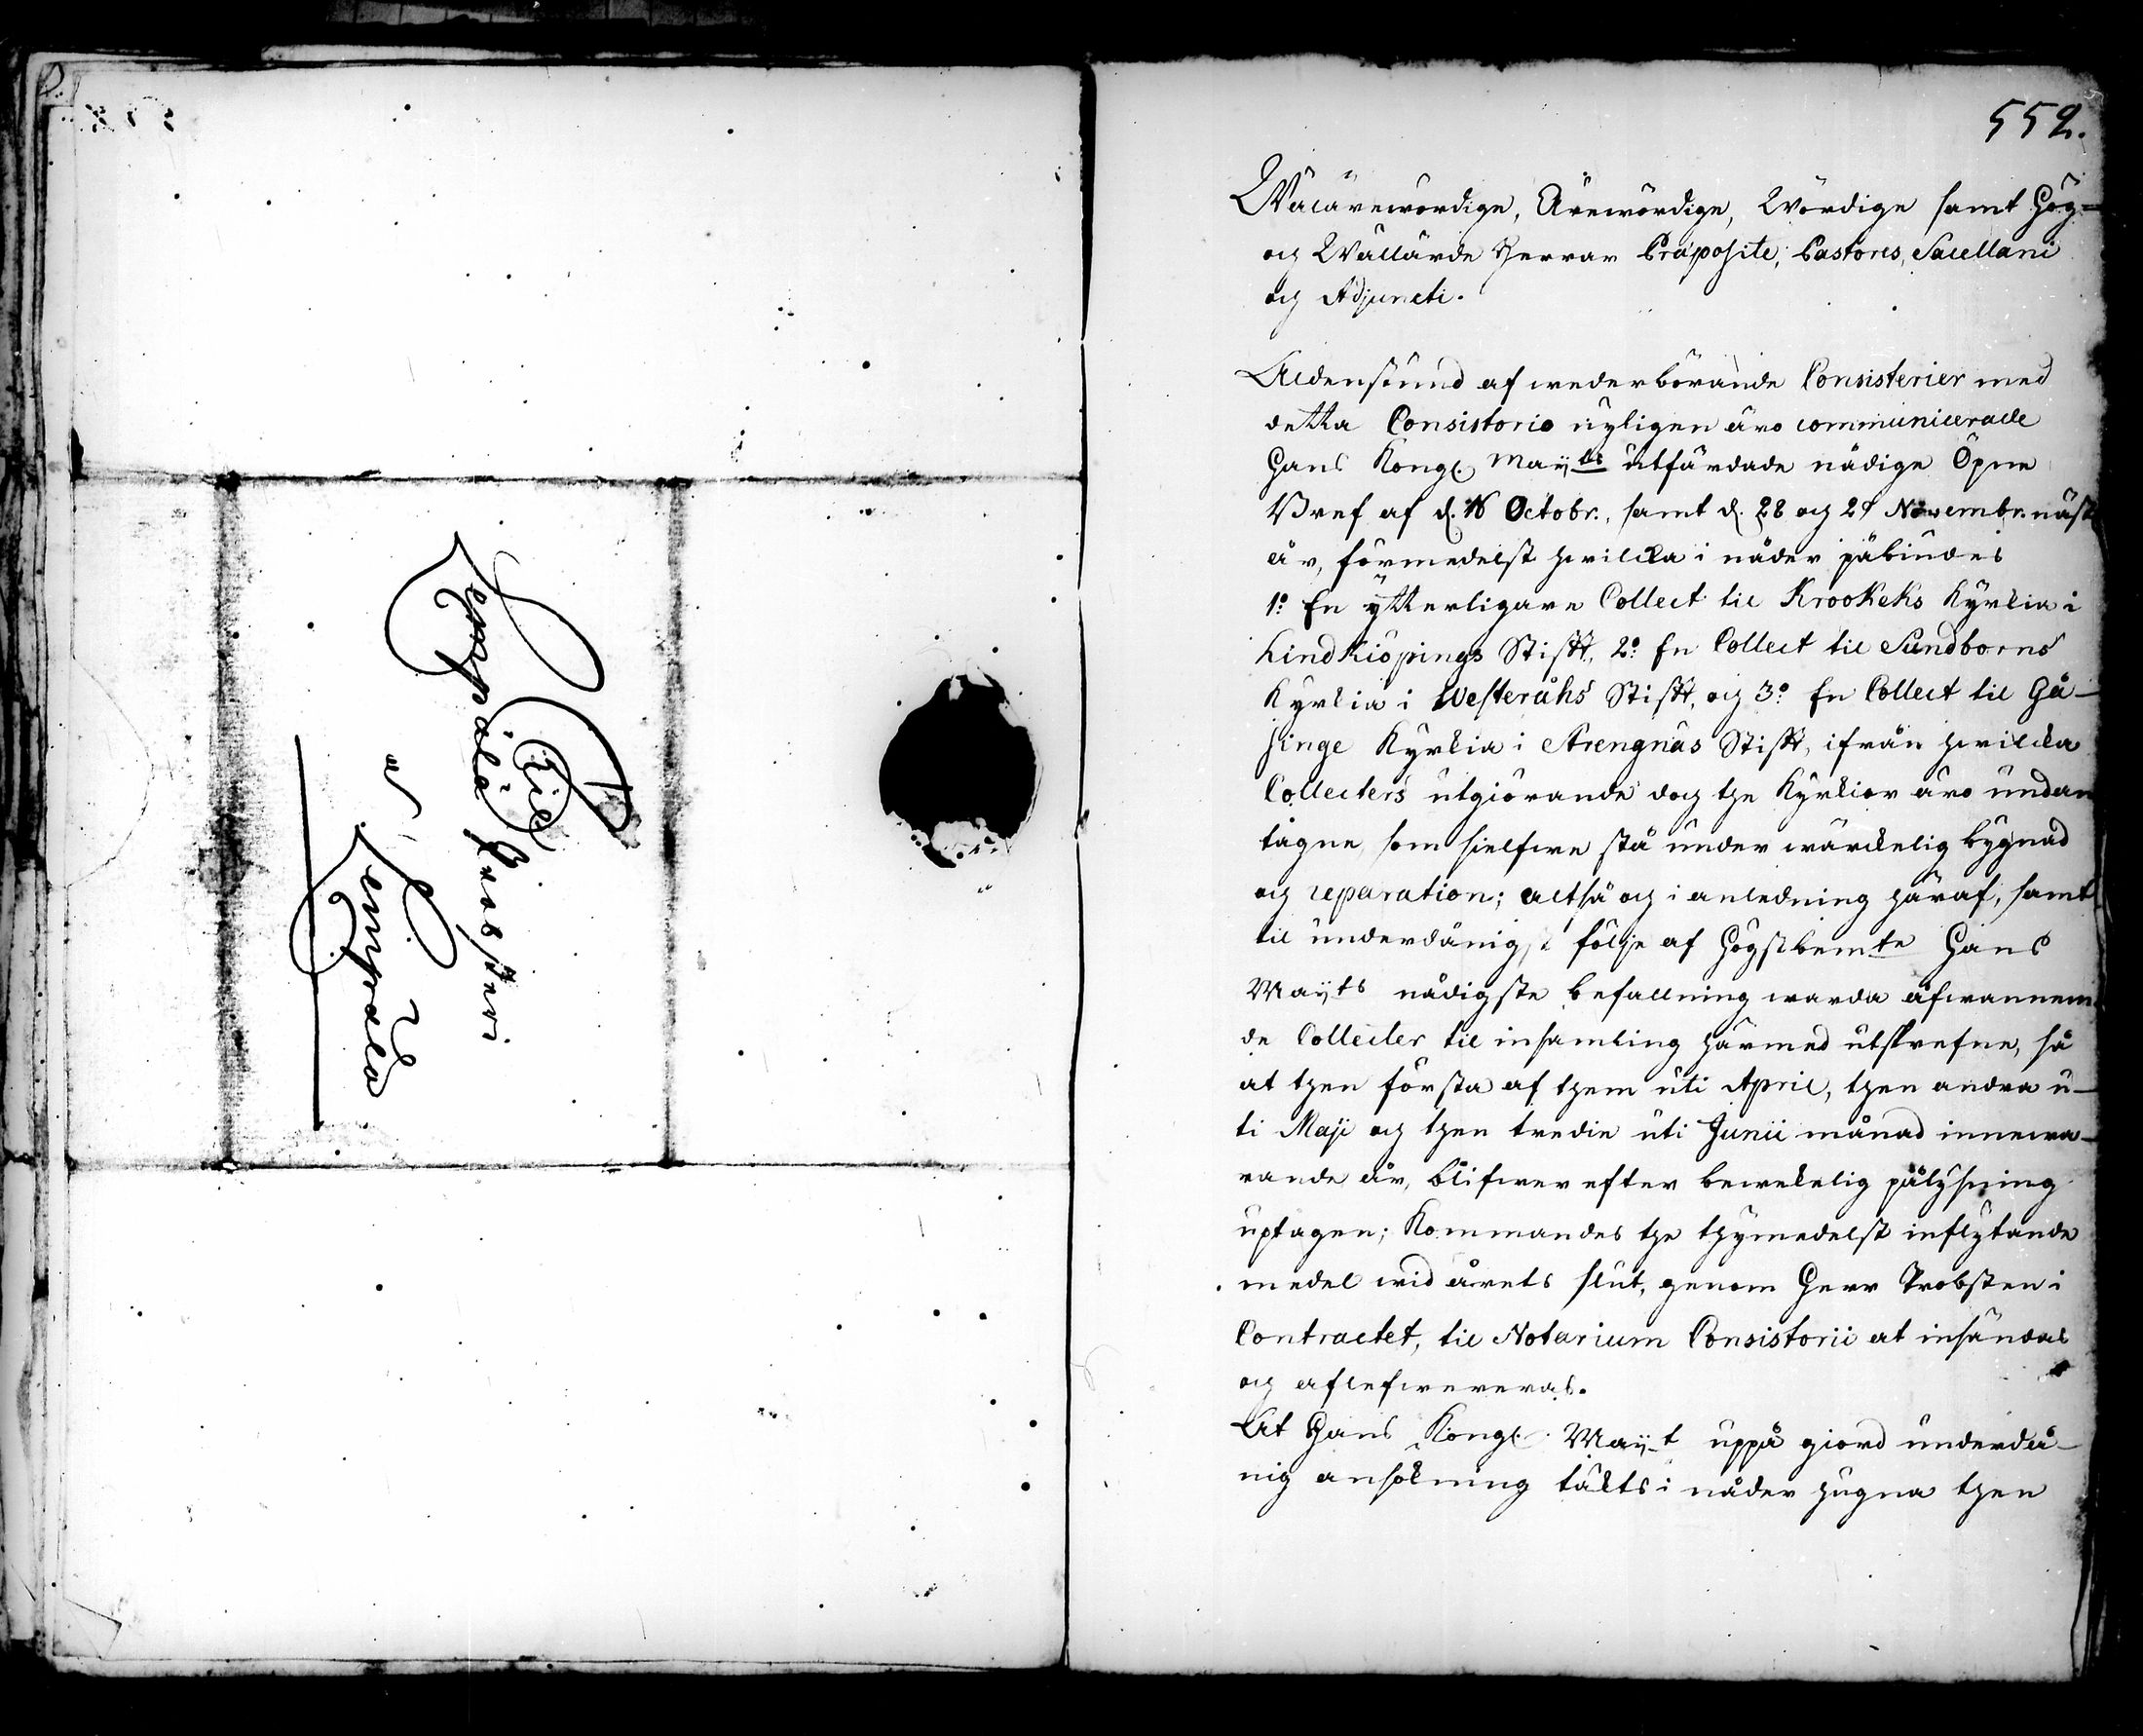 Til
Lempälä Probsteri
a Lempälä
552.
Wälärewördige, Ärewördige, Wördige samt Hög-
och Wällärde Herrar Præposite, Pastores, Sacellani
och Adjuncti.
Aldenstund af wederbörande Consistorier med
detta Consistorio nyligen äro communicerade
Hans Kongl. Maÿts utfärdade nådige Öpne
Bref af d. 16 Octobr., samt d. 28 och 29 Novembr. näst
år, förmedelst hwilcka i nåder påbiudes
1:o En ytterligare Collect til Krookeks Kyrkia i
Lindkiöpings Stifft, 2:o En Collect til Sundborns
Kyrkia i Westeråhs Stifft, och 3:o En Collect til Gå-
singe Kyrkia i Strengnäs Stifft, ifrån hwilcka
Collecters utgiörande doch the Kyrkior äro undan
tagne, som sielfwe stå under wärckelig bygnad
och reparation; altså och i anledning häraf, samt
til underdånigst följe af Högstbemte Hans
Maÿts nådigste befallning warda åfwannem-
de Collecter til insamling härmed utskrefne, så
at then första af them uti April, then andra u-
ti Maji och then tredie uti Junii månad innewa-
rande år, blifwer efter bewekelig pålysning
uptagen; Kommandes the thymedelst inflytande
medel wid årets slut, genom Herr Probsten i
Contractet, til Notarium Consistorii at insändas
och aflefwereras.
At Hans Kongl. Maÿt uppå giord underdå-
nig ansökning täkts i nåder hugna then